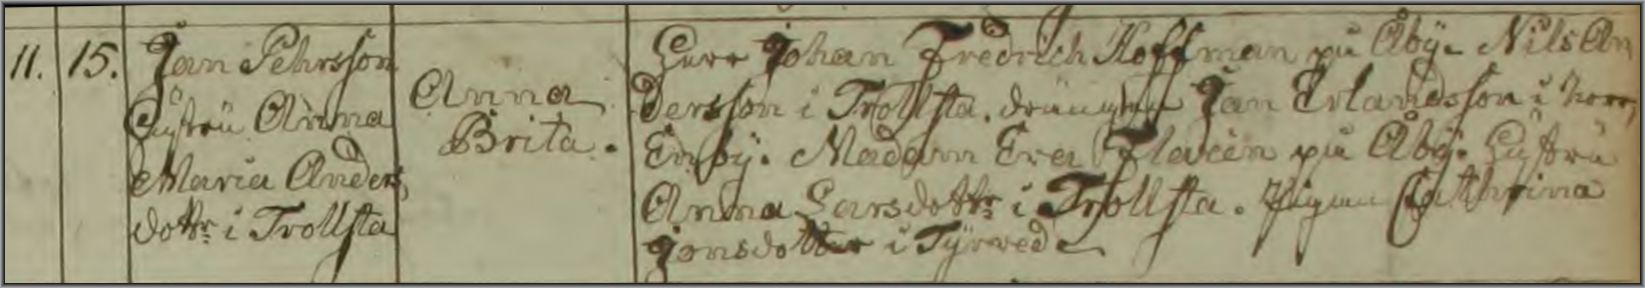 11. 15. Jan Pehrsson Herr Johan Fredrich Hoffman på Åby. Nils An
Hustru Anna Anna dersson i Trollsta. drängen Jan Erlandsson i Norr,
Maria Anders, Brita. Enby. Madam Eva på Åby. Hustru
dottr i Trollsta Anna Larsdottr i Trollsta. Pigan Cathrina
Jonsdotter i Tyrved